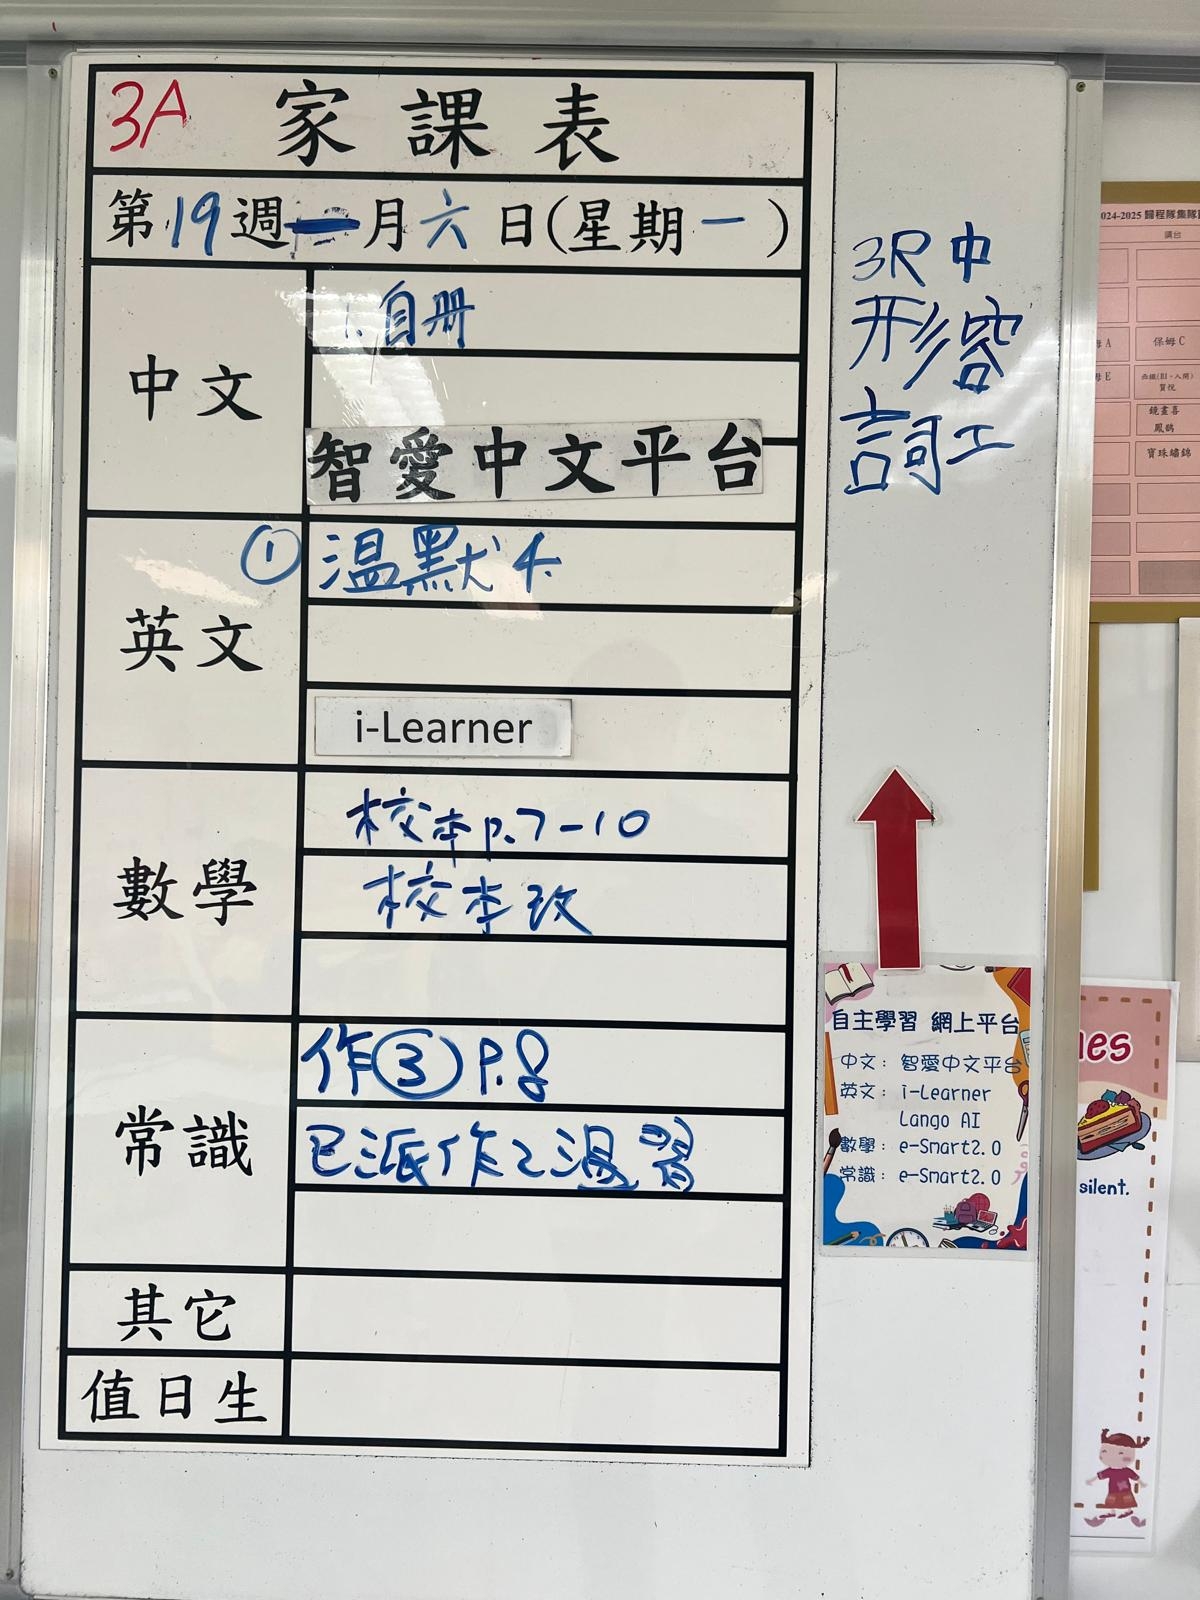 3A 家課表
第19週一月六日(星期一)
中文
1. 自冊
智愛中文平台
英文
① 温默4.
i-Learner
數學
校本p.7-10
校本改
常識
作③P.8
已派作2温習
其它
值日生
3R中
形容
詞工
自主學習 網上平台
中文: 智愛中文平台
英文: i-Learner
Lango AI
數學: e-Smart2.0
常識: e-Smart2.0
2024-2025 歸程隊集隊
講台
保姆C
寶珠繡錦
silent.